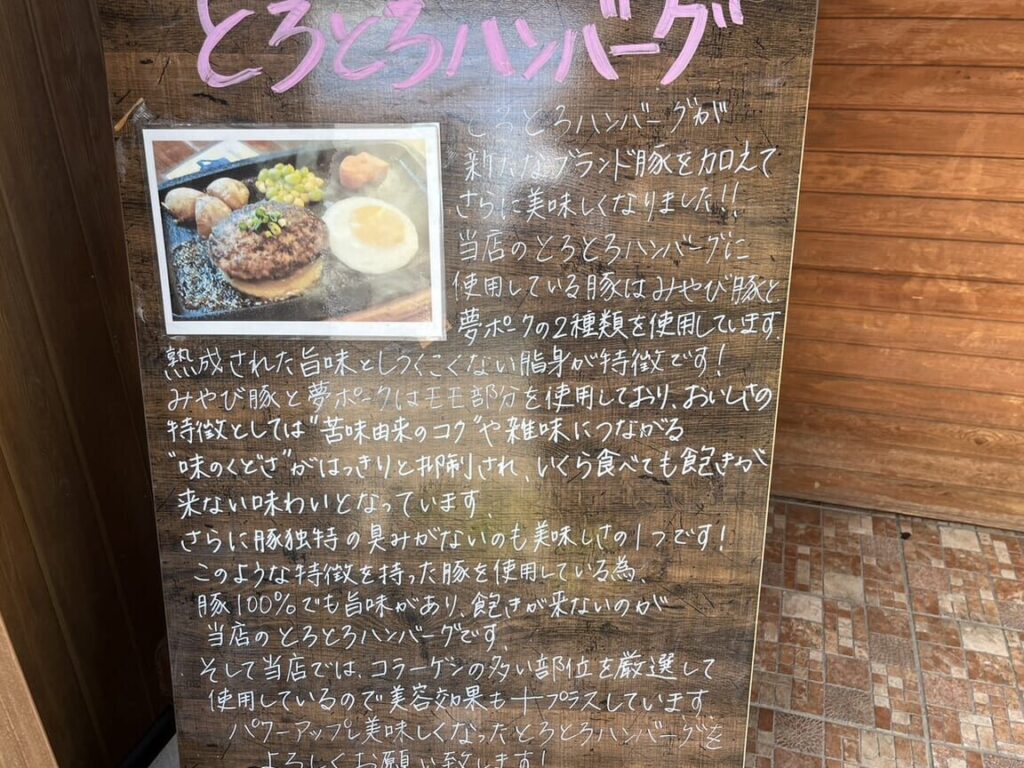 とろとろハンバーグ
とろとろハンバーグが
新たなブランド豚を加えて
さらに美味しくなりました!!
当店のとろとろハンバーグに
使用している豚はみやび豚と
夢ポークの2種類を使用しています.
熟成された旨味としつくこくない脂身が特徴です!
みやび豚と夢ポークはモモ部分を使用しており、おいしさの
特徴としては"苦味由来のコク"や雑味につながる
"味のくどさ"がはっきりと抑制され、いくら食べても飽きが
来ない味わいとなっています.
さらに豚独特の臭みがないのも美味しさの1つです!
このような特徴を持った豚を使用している為、
豚100%でも旨味があり、飽きが来ないのが
当店のとろとろハンバーグです.
そして当店では、コラーゲンの多い部位を厳選して
使用しているので美容効果も十プラスしています
パワーアップし美味しくなったとろとろハンバーグを
よろしくお願い致します!